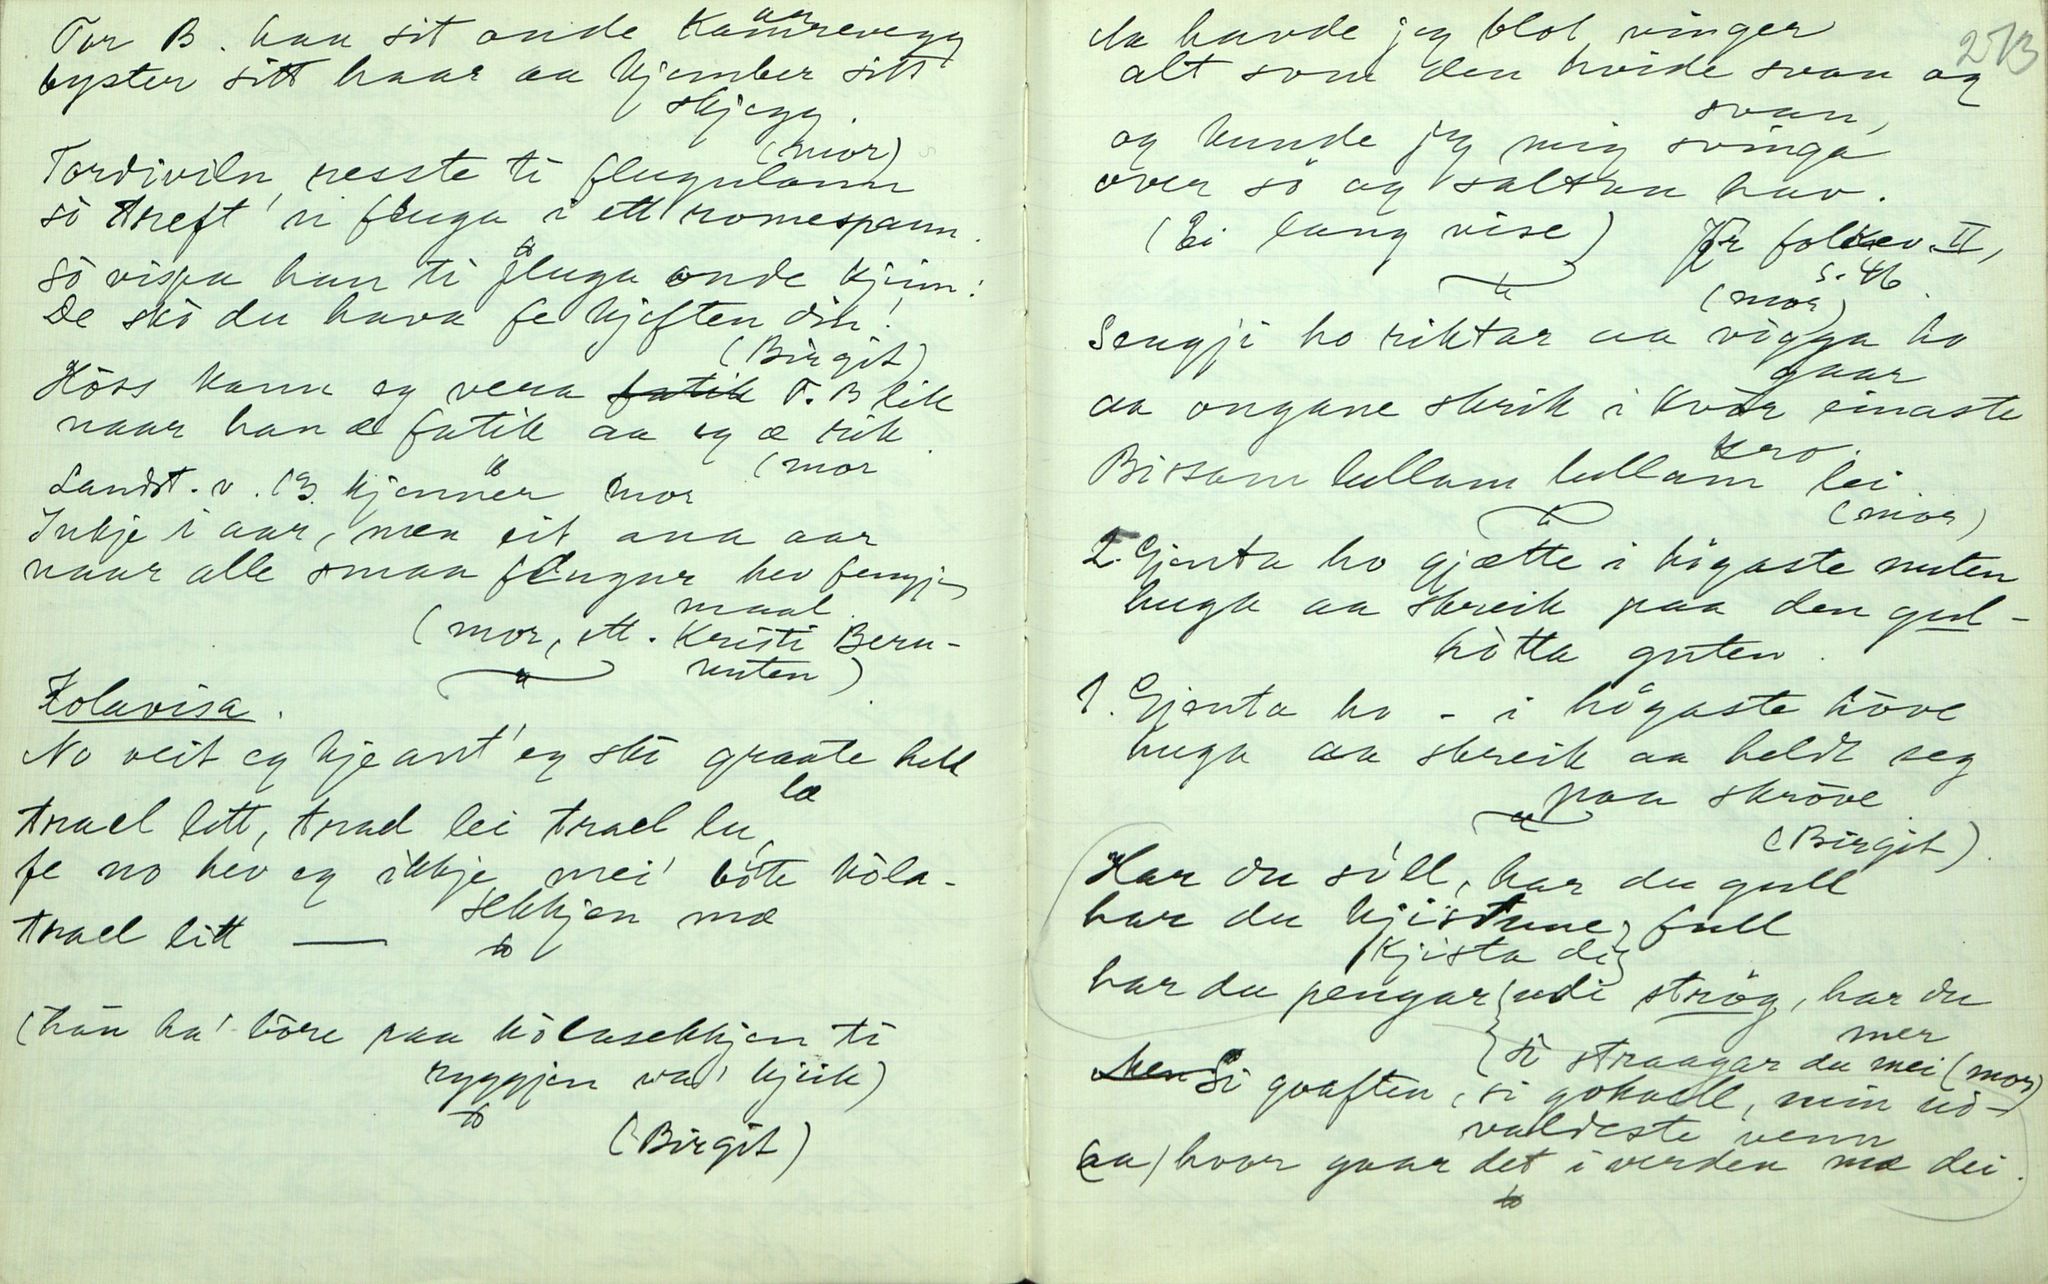 Tor B. han sit onde Kamrevegg
byster sitt haar aa kjember sitt
skjegg.
(mor)
Tordiviln, resste ti flugulann
so treft' 'n fluga i ett romespann.
So vispa han ti fluga onde kjinn:
De sko du hava fe kjeften din!
(Birgit)
Höss kann eg vera T. B lik
naar han æ fatik aa eg æ rik
(mor
Landst. v. B. kjenner mor
Inkje i aar, men eit ana aar
naar alle smaa flugur hev fengje
maal.
(mor, ett. Kristi Beru-
nuten)
Kolavisa.
No veit eg kje ant' eg sko graate hell
læ
trael litt, trael lei trael lu,
fe no hev eg ikkje mei' bóte kóla-
sekkjen mæ
trael litt —
(hân ha' bóre paa kólasekkjen ti
ryggjen va' kjeik)
(Birgit)
213
Aa havde jeg blot vinger
alt som den hvide svan og
svan,
og kunde jeg mig svinga
over sö og saltan hav.
(Ei lang vise) Jfr folkev. II,
s. 46.
(mor)
Sengji ho riktar aa vogga ho
gaar
aa ongane skrik i kvar einaste
kro.
Bissam lullam lullam lei
(mor)
2. Gjenta ho gjætte i högaste nuten
huga aa skreik paa den gul-
hötta guten.
1. Gjenta ho - i högaste höve
huga aa skreik aa heldt seg
paa skröve
(Birgit).
Har du söll, har du gull
har du kjistune full
kjista di
har du pengar udi strög, har du
mer
so straagar du mei (mor)
Si goaften, si gokvell, min ud-
valdeste venn
(aa) hvor gaar det i verden mæ dei.